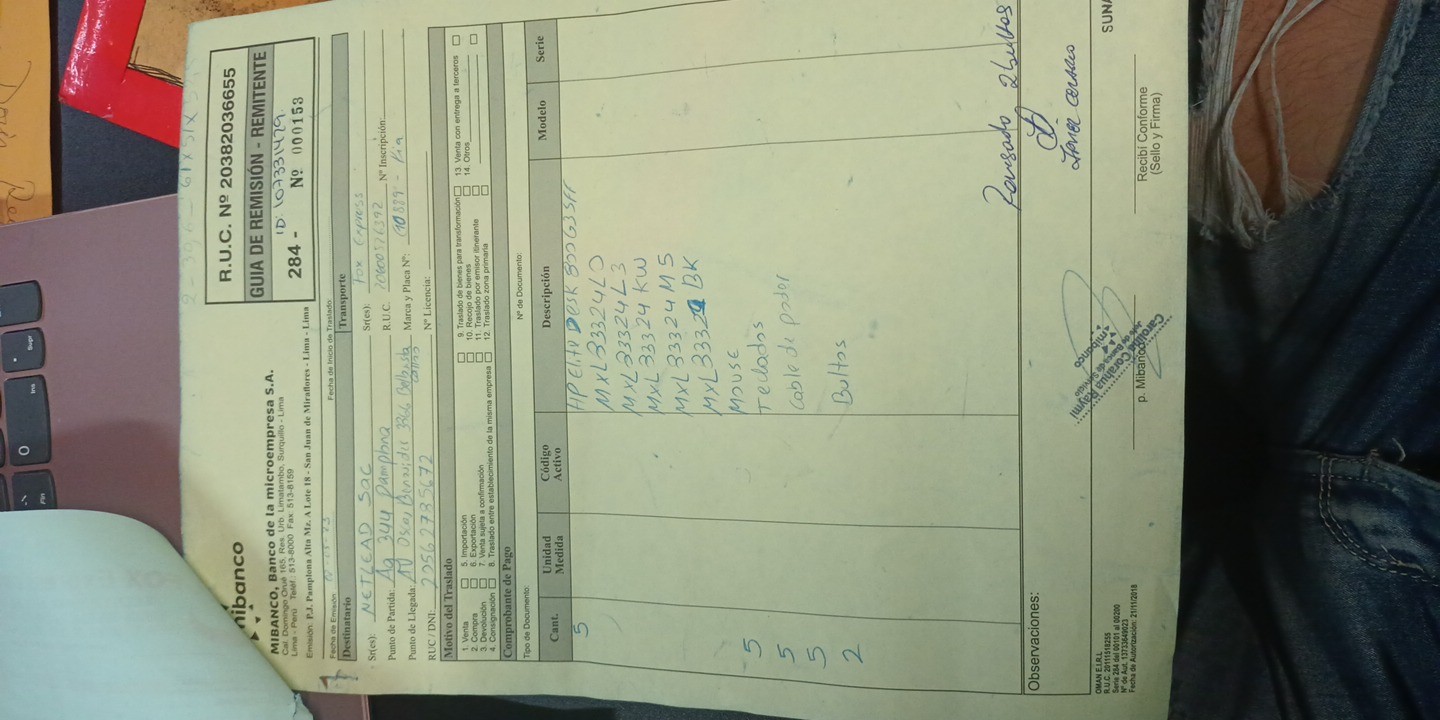 mibanco
MIBANCO, Banco de la microempresa S.A.
Cal. Domingo Orué 165, Res. Urb. Limatambo, Surquillo - Lima
Lima - Perú Telef.: 513-8000 Fax: 513-8159
Emisión: P.J. Pamplona Alta Mz. A Lote 18 - San Juan de Miraflores - Lima - Lima
R.U.C. Nº 20382036655
GUIA DE REMISIÓN - REMITENTE
ID: 107331479
284 - Nº 000153
Fecha de Emisión:
Fecha de Inicio de Traslado:
Destinatario
Transporte
Sr(es): NETLEAD SAC
Sr(es): Fox Express
Punto de Partida: Ag 344 Pamplona
R.U.C. 20600376392 Nº Inscripción:
Punto de Llegada: AV Oscar Benavides 3866
Marca y Placa Nº: Kia
RUC / DNI:
Nº Licencia:
Motivo del Traslado
1. Venta
2. Compra
3. Devolución
4. Consignación
5. Importación
6. Exportación
7. Venta sujeta a confirmación
8. Traslado entre establecimiento de la misma empresa
9. Traslado de bienes para transformación
10. Recojo de bienes
11. Traslado por emisor itinerante
12. Traslado zona primaria
13. Venta con entrega a terceros
14. Otros
Comprobante de Pago
Tipo de Documento:
Nº de Documento:
Cant. Unidad Medida Código Activo Descripción Modelo Serie
5 HP Elite DESK 800 G3 SFF
MXL33324LD
MXL33324L3
MXL33324KW
MXL33324M5
MXL33324BK
5 MOUSE
5 Teclados
5 Cable de poder
2 Bultos
2 bultos
Observaciones:
Carolina Corahua Raymi
mibanco
p. Mibanco
Recibí Conforme
(Sello y Firma)
SUNA
OMAN E.I.R.L.
R.U.C. 20111518255
Serie 284 del 00101 al 00200
Nº de Aut. 13733649023
Fecha de Autorización: 21/11/2018